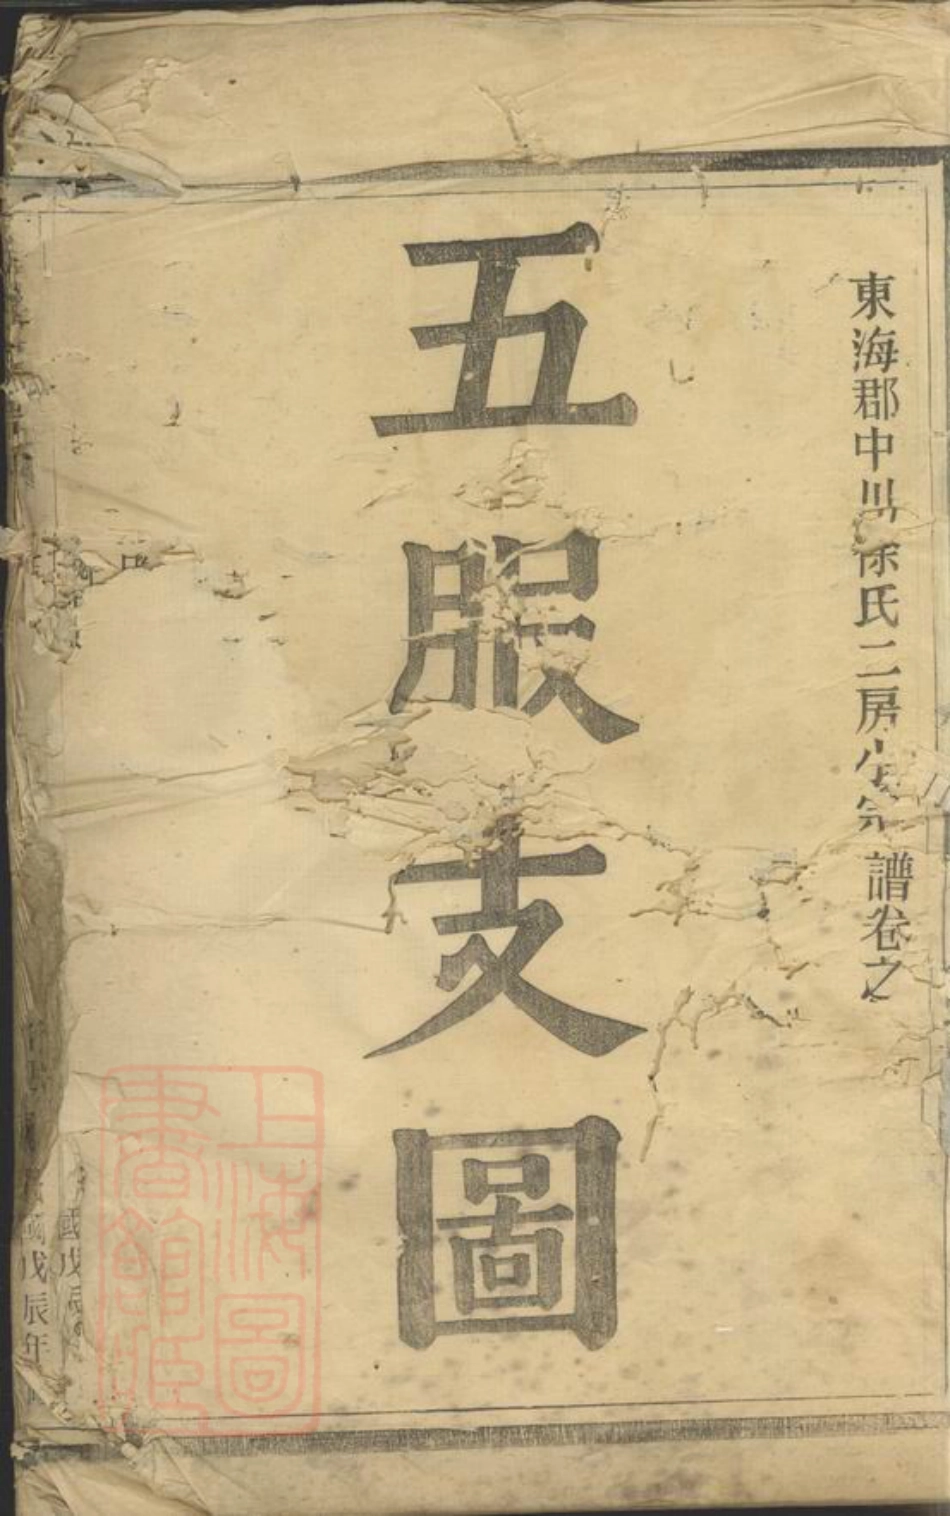 東海郡中川徐氏二房小宗譜卷之
五服支圖
國戊辰
國戊辰年
上海圖書館藏